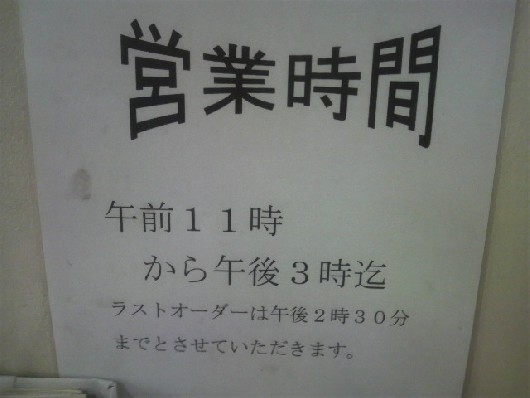 営業時間
午前１１時
から午後３時迄
ラストオーダーは午後２時３０分
までとさせていただきます。